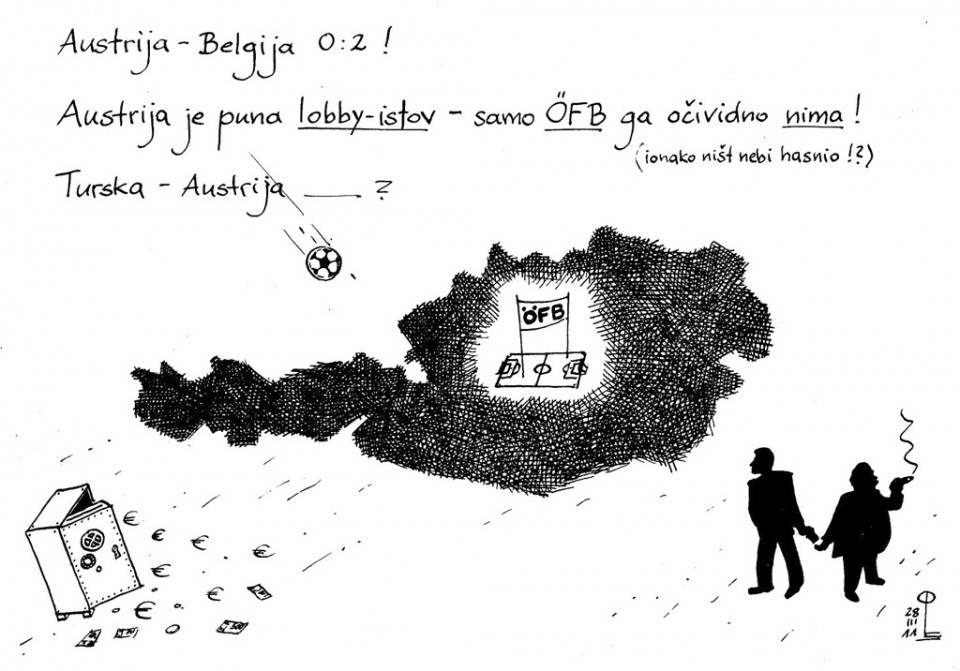 Austrija - Belgija 0:2!
Austrija je puna lobby-istov - samo ÖFB ga očividno nima!
(ionako ništ nebi hasnio!?)
Turska - Austrija ___ ?
ÖFB
€
€
€
€
€
€
28
III
11